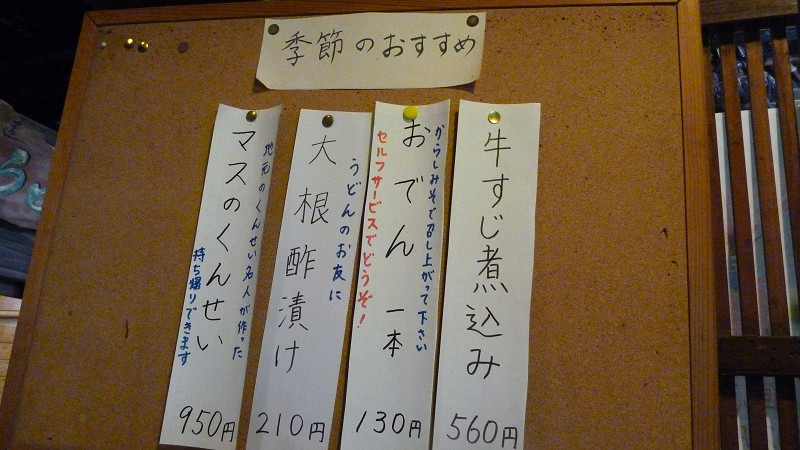 季節のおすすめ
牛すじ煮込み
560円
からしみそで召し上がって下さい
おでん 一本
セルフサービスでどうぞ!
130円
うどんのお友に
大根酢漬け
210円
地元のくんせい名人が作った
マスのくんせい
持ち帰りできます
950円